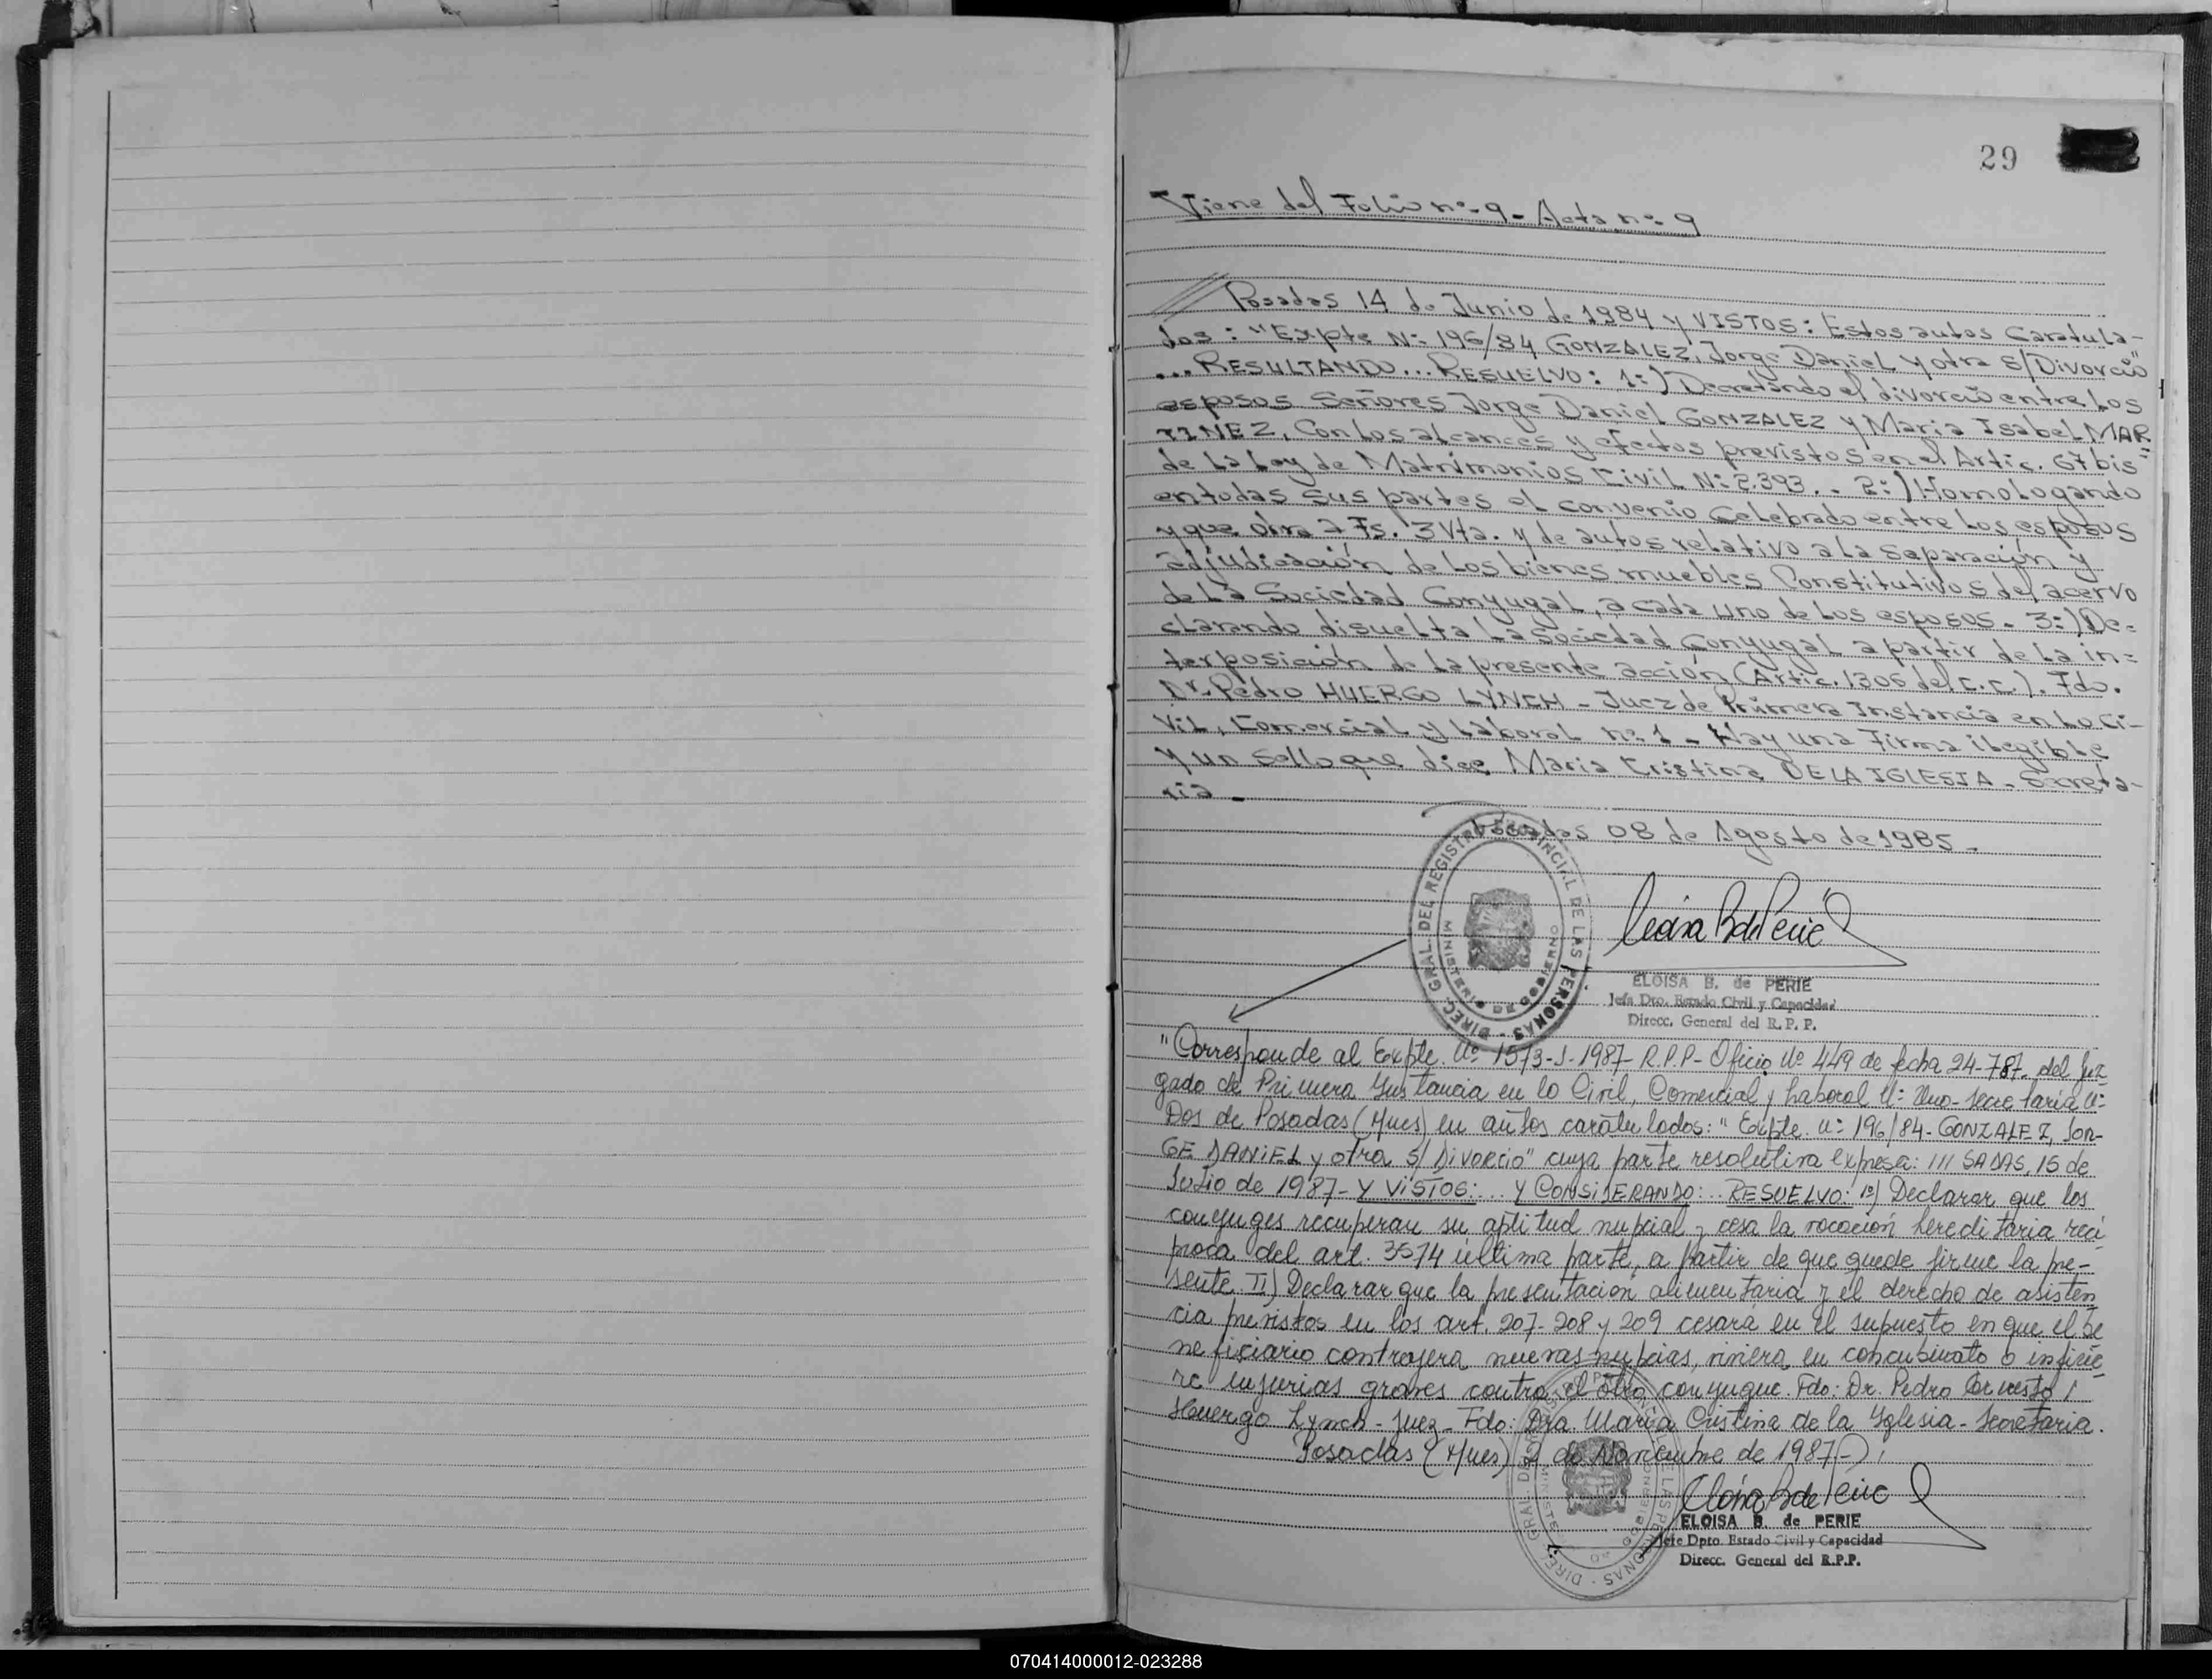 29
Viene del Folio nº 9 - Acta nº 9
Posadas 14 de Junio de 1984 y VISTOS: Estos autos Caratula-
dos: "Expte Nº 196/84 GONZALEZ, Jorge Daniel y otra S/Divorcio"
... RESULTANDO... RESUELVO: 1º) Decretando el divorcio entre Los
esposos Señores Jorge Daniel GONZALEZ y Maria Isabel MAR=
TINEZ, Con los alcances y efectos previstos en el Artic. 67 bis
de La Ley de Matrimonios Civil Nº 2.393.. 2º) Homologando
en todas sus partes el convenio Celebrado entre Los esposos
y que obra a Fs. 3 Vta. y de autos relativo a la separación y
adjudicación de Los bienes muebles Constitutivos del acervo
de La Sociedad Conyugal, a cada uno de Los esposos. 3º) De=
clarando disuelta La Sociedad Conyugal a partir de La in=
terposición de La presente acción (Artic. 1306 del C.C.). Fdo.
Dr. Pedro HUERGO LYNCH - Juez de Primera Instancia en Lo Ci-
vil, Comercial y Laboral nº 1 - Hay una Firma ilegible
y un Sello que dice Maria Cristina DE LA IGLESIA - Secreta-
ria -
Posadas 08 de Agosto de 1985 -
DIREC. GRAL. DEL REGISTRO PROVINCIAL DE LAS PERSONAS
MINISTERIO DE GOBIERNO
ELOISA B. de PERIE
Jefa Dto. Estado Civil y Capacidad
Direcc. General del R.P.P.
"Corresponde al Expte. Nº 1573-J-1987- R.P.P- Oficio Nº 449 de fecha 24-7-87- del Juz-
gado de Primera Instancia en lo Civil, Comercial y Laboral Nº Uno- Secretaria Nº
Dos de Posadas (Mnes) en autos caratulados: "Expte. nº 196/84- GONZALEZ, JOR-
GE DANIEL y otra S/ Divorcio" cuya parte resolutiva expresa: /// SADAS, 15 de
Julio de 1987- Y VISTOS:... Y CONSIDERANDO:.. RESUELVO: 1º) Declarar que los
conyuges recuperan su aptitud nupcial y cesa la vocación hereditaria recí
proca del art. 3574 última parte, a partir de que quede firme la pre-
sente. II) Declarar que la presentación alimentaria y el derecho de asisten
cia previstos en los art. 207- 208 y 209 cesará en el supuesto en que el be
neficiario contrajera nuevas nupcias, viviera en concubinato o infirie
re injurias graves contra el otro conyugue. Fdo: Dr. Pedro Ernesto
Huergo Lynch - Juez - Fdo: Dra. María Cristina de la Iglesia - Secretaria.
Posadas (Mnes) 2 de Noviembre de 1987-
DIREC. GRAL. DEL REGISTRO PROVINCIAL DE LAS PERSONAS
MINISTERIO DE GOBIERNO
ELOISA B. de PERIE
Jefe Dpto. Estado Civil y Capacidad
Direcc. General del R.P.P.
070414000012-023288